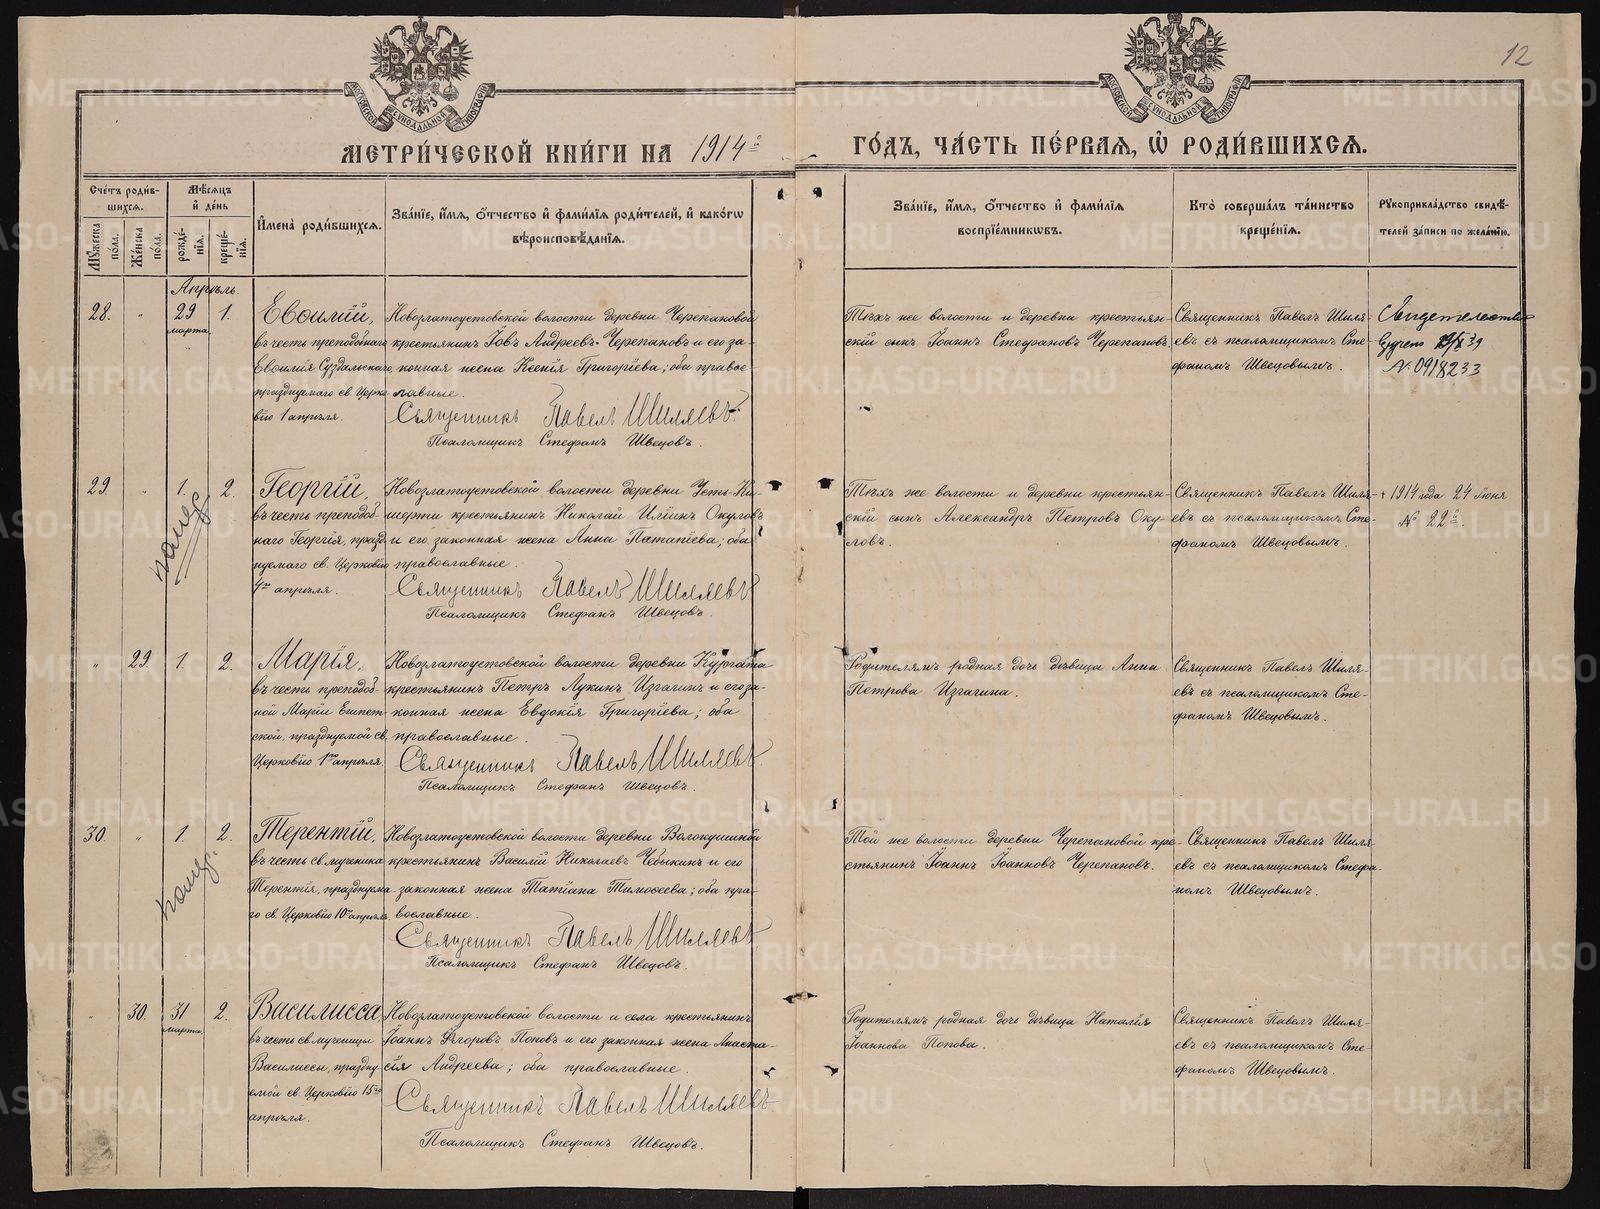 12
МЕТРИ́ЧЕСКОЙ КНИ́ГИ НА 1914 й
ГО́ДЪ, ЧА́СТЬ ПЕ́РВАЯ, Ѡ҆ РОДИ́ВШИХСЯ.
Сче́тъ роди́в-
шихся.
Мꙋ́жеска по́ла.
Же́нска по́ла.
Мѣ́сяцъ
и҆ де́нь
рожде́-
нїѧ.
креще́-
нїѧ.
И҆мена̀ роди́вшихся.
Зва́нїе, и҆́мѧ, ѻ҆́тчество и҆ фами́лїѧ роди́телей, и҆ како́гѡ
вѣроисповѣ́данїѧ.
Зва́нїе, и҆́мѧ, ѻ҆́тчество и҆ фами́лїѧ
воспрїе́мникѡвъ.
Кто̀ соверша́лъ та́инство
креще́нїѧ.
Рꙋкоприкла́дство свидѣ́-
телей за́писи по жела́нїю.
Апрѣль.
28. " 29 марта 1.
Евѳимій,
въ честь преподобнаго
Евѳимія Суздальскаго
празднуемаго св. Церко
вію 1 апрѣля.
Новозлатоустовской волости деревни Черепановой
крестьянинъ Іовъ Андреевъ Черепановъ и его за-
конная жена Ксенія Григоріева; оба правос-
лавные.
Священникъ Павелъ Шиляевъ.
Псаломщикъ Стефанъ Швецовъ.
Тѣхъ же волости и деревни крестьян-
скій сынъ Іоаннъ Стефановъ Черепановъ.
Священникъ Павелъ Шиля-
евъ съ псаломщикомъ Сте-
фаномъ Швецовымъ.
№ 0918233
29. " 1. 2.
Георгій,
въ честь преподоб-
наго Георгія, празд-
нуемаго св. Церковію
4го апрѣля.
Новозлатоустовской волости деревни Усть-Ки-
шерти крестьянинъ Николай Иліинъ Окуловъ
и его законная жена Анна Патапіева; оба
православные.
Священникъ Павелъ Шиляевъ
Псаломщикъ Стефанъ Швецовъ.
Тѣхъ же волости и деревни крестьян-
скій сынъ Александръ Петровъ Оку-
ловъ.
Священникъ Павелъ Шиля-
евъ съ псаломщикомъ Сте-
фаномъ Швецовымъ.
+ 1914 года 24 Іюня
№ 22 й.
" 29. 1. 2.
Марія.
въ честь преподоб-
ной Маріи Египет-
ской, празднуемой св.
Церковію 1го апрѣля.
Новозлатоустовской волости деревни Кургата
крестьянинъ Петръ Лукинъ Изгагинъ и его за-
конная жена Евдокія Григоріева; оба
православные.
Священникъ Павелъ Шиляевъ.
Псаломщикъ Стефанъ Швецовъ.
Родителямъ родная дочь дѣвица Анна
Петрова Изгагина.
Священникъ Павелъ Шиля-
евъ съ псаломщикомъ Сте-
фаномъ Швецовымъ.
30. " 1. 2.
Терентій,
въ честь св. мученика
Терентія, празднуема-
го св. Церковію 10го апрѣля.
Новозлатоустовской волости деревни Волокушиной
крестьянинъ Василій Николаевъ Чебыкинъ и его
законная жена Татіана Тимоѳеева; оба пра-
вославные.
Священникъ Павелъ Шиляевъ
Псаломщикъ Стефанъ Швецовъ.
Той же волости деревни Черепановой кре-
стьянинъ Іоаннъ Іоанновъ Черепановъ.
Священникъ Павелъ Шиля-
евъ съ псаломщикомъ Стефа-
номъ Швецовымъ.
" 30. 31 марта 2.
Василисса
въ честь св. мученицы
Василиссы, праздну-
емой св. Церковію 15го
апрѣля.
Новозлатоустовской волости и села крестьянинъ
Іоаннъ Егоровъ Поповъ и его законная жена Анаста-
сія Андреева; оба православные.
Священникъ Павелъ Шиляевъ
Псаломщикъ Стефанъ Швецовъ.
Родителямъ родная дочь дѣвица Наталія
Іоаннова Попова.
Священникъ Павелъ Шиля-
евъ съ псаломщикомъ Сте-
фаномъ Швецовымъ.
METRIKI.GASO-URAL.RU